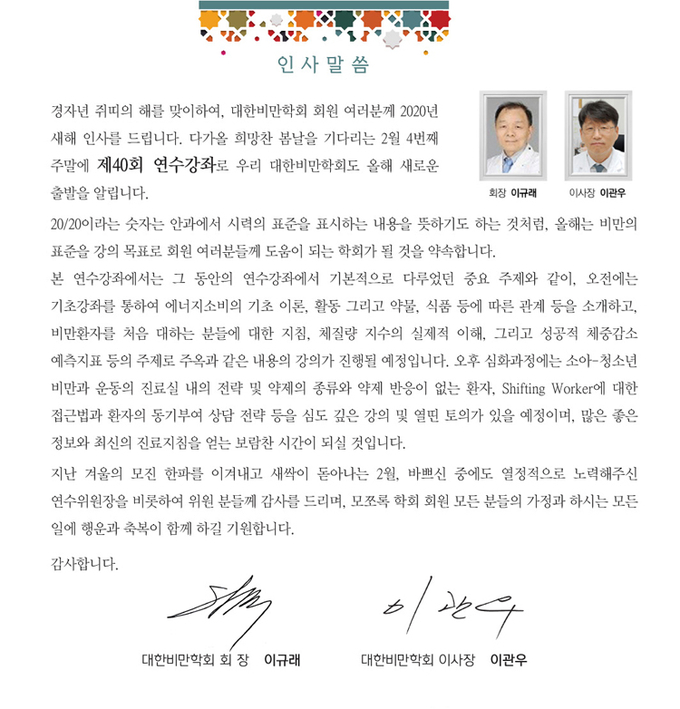 인사말씀
경자년 쥐띠의 해를 맞이하여, 대한비만학회 회원 여러분께 2020년
새해 인사를 드립니다. 다가올 희망찬 봄날을 기다리는 2월 4번째
주말에 제40회 연수강좌로 우리 대한비만학회도 올해 새로운
출발을 알립니다.
회장 이규래
이사장 이관우
20/20이라는 숫자는 안과에서 시력의 표준을 표시하는 내용을 뜻하기도 하는 것처럼, 올해는 비만의
표준을 강의 목표로 회원 여러분들께 도움이 되는 학회가 될 것을 약속합니다.
본 연수강좌에서는 그 동안의 연수강좌에서 기본적으로 다루었던 중요 주제와 같이, 오전에는
기초강좌를 통하여 에너지소비의 기초 이론, 활동 그리고 약물, 식품 등에 따른 관계 등을 소개하고,
비만환자를 처음 대하는 분들에 대한 지침, 체질량 지수의 실제적 이해, 그리고 성공적 체중감소
예측지표 등의 주제로 주옥과 같은 내용의 강의가 진행될 예정입니다. 오후 심화과정에는 소아-청소년
비만과 운동의 진료실 내의 전략 및 약제의 종류와 약제 반응이 없는 환자, Shifting Worker에 대한
접근법과 환자의 동기부여 상담 전략 등을 심도 깊은 강의 및 열띤 토의가 있을 예정이며, 많은 좋은
정보와 최신의 진료지침을 얻는 보람찬 시간이 되실 것입니다.
지난 겨울의 모진 한파를 이겨내고 새싹이 돋아나는 2월, 바쁘신 중에도 열정적으로 노력해주신
연수위원장을 비롯하여 위원 분들께 감사를 드리며, 모쪼록 학회 회원 모든 분들의 가정과 하시는 모든
일에 행운과 축복이 함께 하길 기원합니다.
감사합니다.
이관우
대한비만학회 회 장 이규래
대한비만학회 이사장 이관우